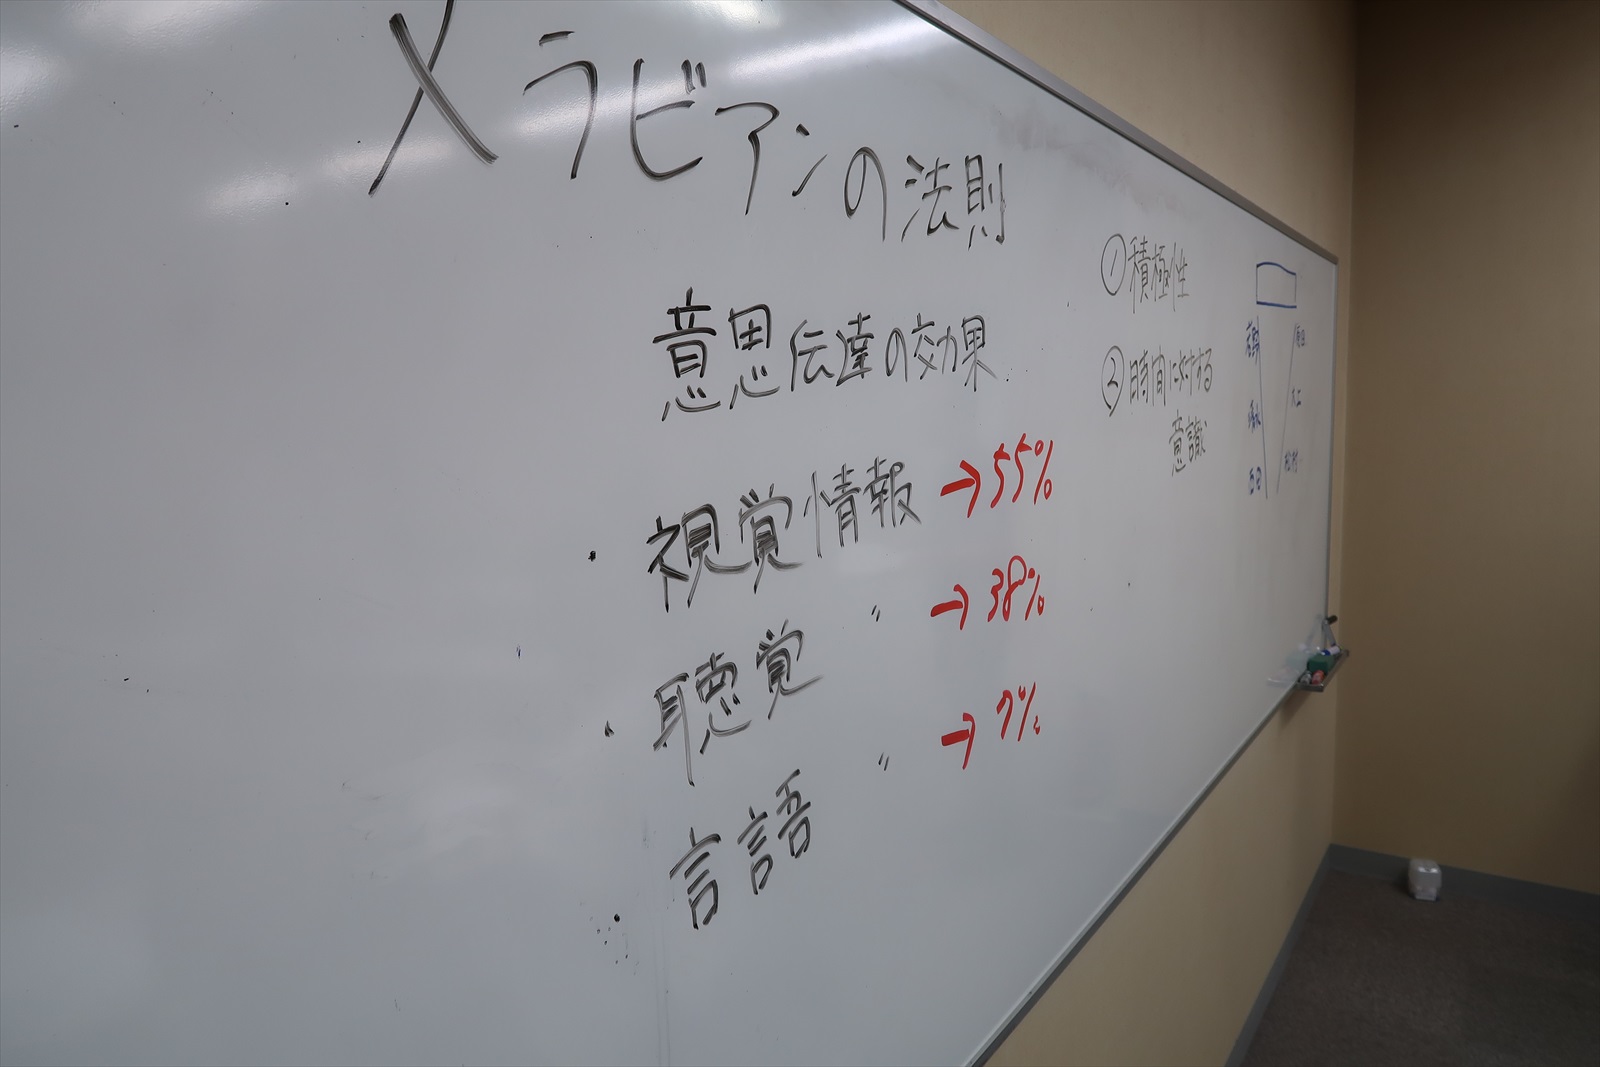 メラビアンの法則
意思伝達の効果
・視覚情報 → 55%
・聴覚 〃 → 38%
・言語 〃 → 7%
① 積極性
② 時間に対する
意識